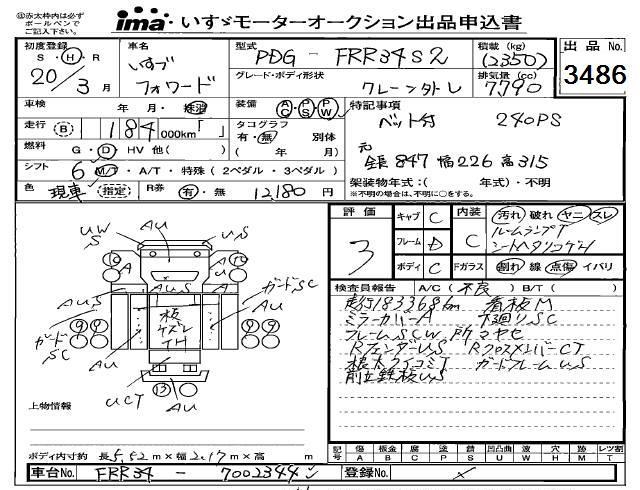 ◎赤太枠内は必ず
ボールペンで
ご記入下さい。
ima・いすゞモーターオークション出品申込書
初度登録 S・H・R 20年 3月
車名 いすゞ フォワード
型式 PDG - FRR34S2
グレード・ボディ形状 クレーン
積載 (kg) (2350)
排気量(cc) 7790
出品 No. 3486
車検 年 月・
装備 AC PS PW
特記事項 ベット付 240PS
走行 (B) 184 000km「 」
タコグラフ 有・無 別体 ( 年 月)
燃料 G・D HV 他( )
元
全長847 幅226 高315
シフト 6 M/T・A/T・特殊(2ペダル・3ペダル)
架装物年式:( 年式)・不明
※不明の場合は、不明に○をする。
色 現車 (指定) R券 有・無 12,180円
評価 3
キャブ C
フレーム D
ボディ C
内装 C
汚れ 破れ ヤニ スレ
ルームランプT
Fガラス 割れ 線 点傷 イバリ
検査員報告 A/C(不良) B/T( )
走行183368km 看板M
ミラーカバーA 下廻りSC
フレームSCW
RフェンダーUS RクロスメンバーCT
ガードフレームUS
前立鉄板US
UW S
AU
US
A
A
AUS
AU
ガードSC
AU
ガードSC
板
UCT
AU
AU
⑬
上物情報
ボディ内寸約 長5.52m×幅2.17m×高 m
記号 傷A 板金B 腐C 塗P 錆S 凹凸曲U 波W 穴H 跡M レツ割T
車台No. FRR34 - 7002344
登録No.